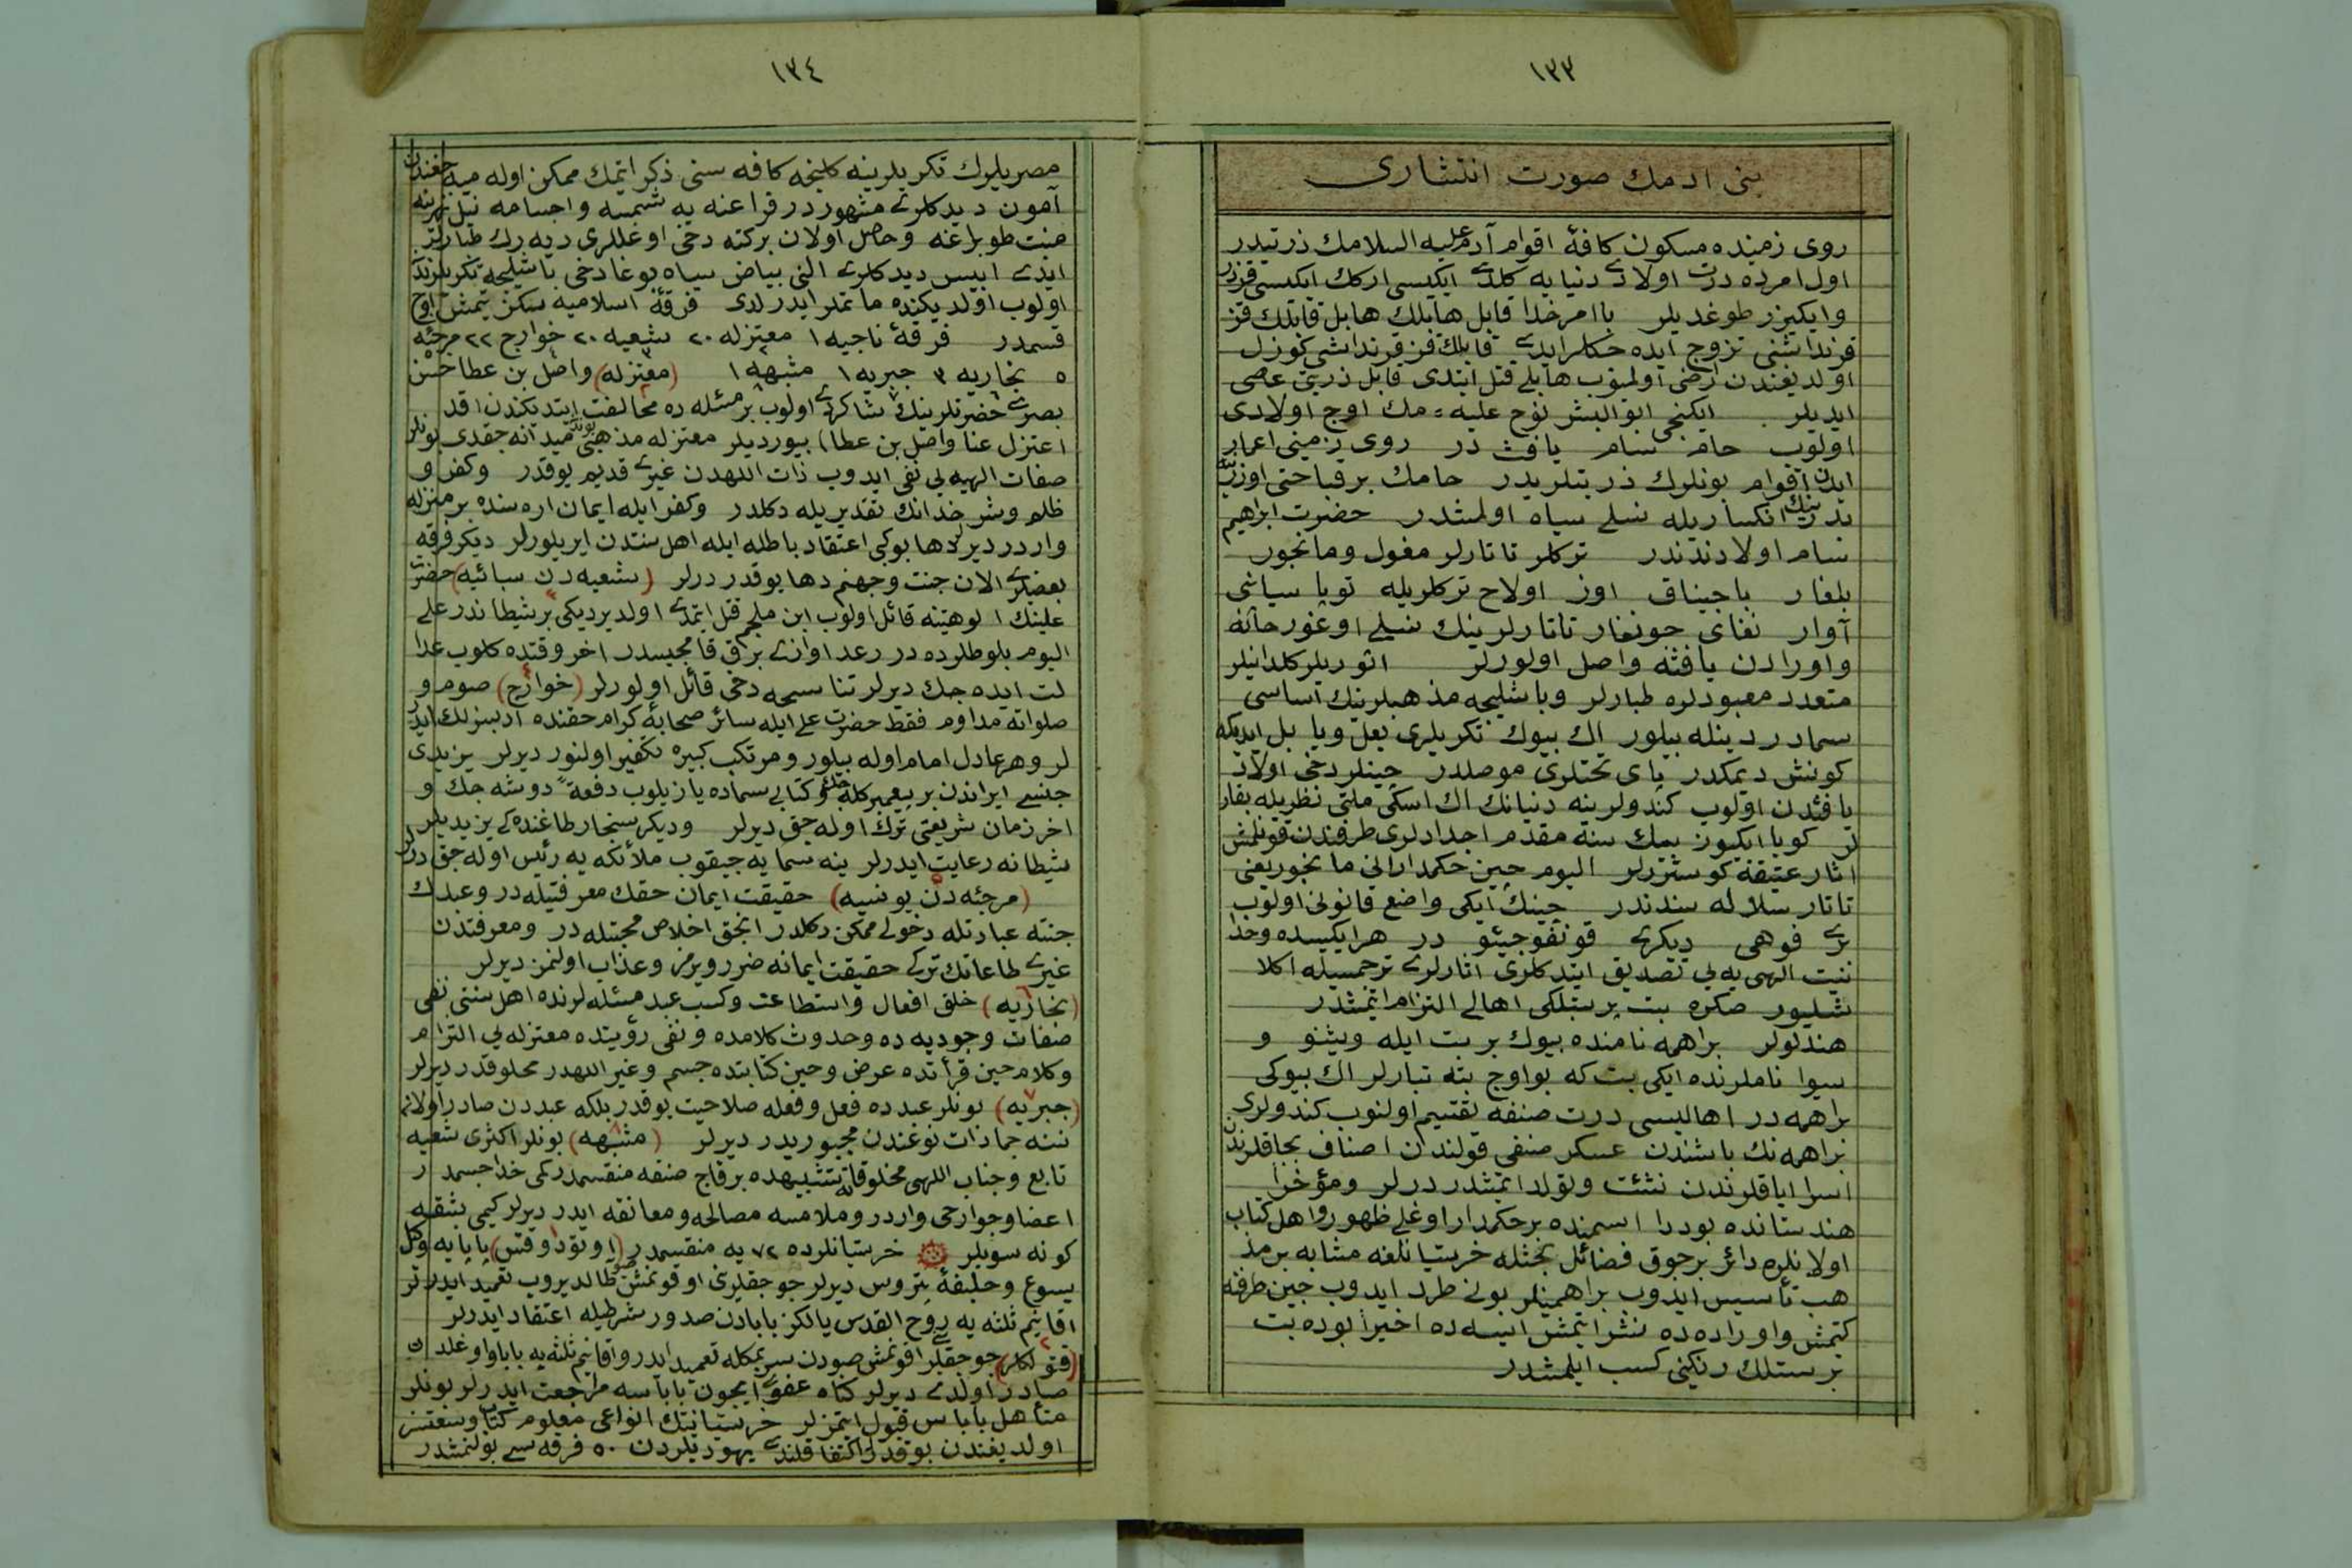 ١٣٣
بنی ادمك صورت انتشاری
روی زمینده مسكون كافۀ اقوام آدم علیه السلامك ذریتیدر
اول امرده درت اولادی دنیایه كلدی ایكیسی اركك ایكیسی قزدر
وایكیزر طوغدیلر باامر خدا قابل هابلك هابل قابلك قز
قرنداشنی تزوج ایده جكلر ایدی قابلك قز قرنداشی كوزل
اولدیغندن ارضی اولمیوب هابلی قتل ایتدی قابل ذریتی عصی
ایدیلر ایكنجی ابوالبشر نوح علیه مك اوج اولادی
اولوب حام سام یافث در روی زمینی اعمار
ایدن اقوام بونلرك ذریتلریدر حامك بر قباحتی اوزرینه
پدرینك انكساریله نسلی سیاه اولمشدر حضرت ابراهیم
سام اولادندندر تركلر تاتارلر مغول ومانجور
بلغار باجیناق اوز اولاح تركلریله توبا سیاشی
آوار نغای جونغار تاتارلرینك نسلی اوغورخانه
واورادن یافثه واصل اولورلر اثوریلر كلدانیلر
متعدد معبودلره طپارلر وباشلیجه مذهبلرینك اساسی
سمادر دینله بیلور اك بیوك تكریلری بعل ویا بل ایدیكه
كونش دیمكدر پای تختلری موصلدر چینلر دخی اولاد
یافثدن اولوب كندولرینه دنیانك اك اسكی ملتی نظریله بقار
لر كویا ایكیوز بیك سنه مقدم اجدادلری طرفندن قونلمش
اثار عتیقه كوسترلر الیوم چین حكمدارانی مانجور یعنی
تاتار سلاله سندندر چینك ایكی واضع قانونی اولوب
بری فوهی دیكری قونفوچیئو در هر ایكیسده وحدا
نیت الهی یه یی تصدیق ایتدكلری اثارلری ترجمسیله اكلا
شلیور صكره بت پرستلكی اهالی التزام ایتمشدر
هندلولر براهمه نامنده بیوك بر بت ایله ویشنو و
سیوا ناملرنده ایكی بت كه بواوج بته تپارلر اك بیوكی
براهمه در اهالیسی درت صنفه تقسیم اولنوب كندولری
براهمه نك باشندن عسكر صنفی قولندن اصناف بجاقلرندن
اسرا ایاقلرندن نشئت وتولد ایتمشدر درلر ومؤخرا
هندستانده بودرا اسمنده بر حكمدار اوغلی ظهور واهل كتاب
اولانلره دائر برجوق فضائل بخشله خرستیانلغه مشابه بر مذ
هب تأسیس ایدوب براهمنلر بونی طرد ایدوب چین طرفه
كتمش واوراده ده نشر ایتمش ایسه ده اخیرا بوده بت
پرستلك رنكینی كسب ایلمشدر
١٣٤
مصریلرك تكریلرینه كلنجه كافه سنی ذكر ایتمك ممكن اوله میه جغندن
آمون دیدكلری مشهوردر فراعنه یه شمسه واجسامه نیل نهرینه
منبت طوبراغه وحاصل اولان بركته دخی اوغللری دیه رك طپارلر
ایدی ابیس دیدكلری النی بیاض سیاه بوغا دخی باشلیجه تكریلرندن
اولوب اولدیكنده ماتملر ایدرلردی فرقۀ اسلامیه سكز یتمش اوج
قسمدر فرقۀ ناجیه ١ معتزله ٢٠ شعیه ٢٠ خوارج ٢٢ مرجئه
٥ نجاریه ٣ جبریه ١ مشبهه ١ (معتزله) واصل بن عطا حسن
بصری حضرتلرینك شاكردی اولوب بر مسئله ده مخالفت ایتدیكندن قد
اعتزل عنا واصل بن عطا) بیوردیلر معتزله مذهبی بوندن میدانه جقدی بونلر
صفات الهیه یی نفی ایدوب ذات اللهدن غیری قدیم یوقدر وكفر و
ظلم وشر خدانك تقدیریله دكلدر وكفر ایله ایمان اره سنده بر منزله
واردر دیرلر دها بوكبی اعتقاد باطله ایله اهل سنتدن ایریلورلر دیكر فرقه
بعضلری الان جنت وجهنم دها یوقدر درلر (شعیه دن سبائیه) حضرت
علینك الوهیتنه قائل اولوب ابن ملجم قتل ایتمدی اولدیردیكی بر شیطاندر علی
الیوم بلوطلرده در رعد اوازی برق قامچیسدر اخر وقتده كلوب عدا
لت ایده جك دیرلر تناسحه دخی قائل اولورلر (خوارج) صوم و
صلواته مداوم فقط حضرت علی ایله سائر صحابۀ كرام حقنده ادبسزلك ایدر
لر وهر عادل امام اوله بیلور ومرتكب كبیره تكفیر اولنور دیرلر یزیدی
جنسی ایراندن بر پیغمبر كله جك وكتابی سماده یازیلوب دفعةً دوشه جك و
اخر زمان شریعتی ترك اوله جق دیرلر ودیكر سنجار طاغنده كی یزیدیلر
شیطانه رعایت ایدرلر ینه سمایه جیقوب ملائكه یه رئیس اوله جق درلر
(مرجئه دن یونسیه) حقیقت ایمان حقك معرفتیله در وعبدك
جنته عبادتله دخولی ممكن دكلدر انجق اخلاص محبتله در ومعرفتدن
غیری طاعاتك تركی حقیقت ایمانه ضرر ویرمز وعذاب اولنمز دیرلر
(نجاریه) خلق افعال واستطاعت وكسب عبد مسئله لرنده اهل سنتی نفی
صفات وجودیه ده وحدوث كلامده ونفی رؤیتده معتزله یی التزام
وكلام حین قرأتده عرض وحین كتابتده جسم وغیر اللهدر مخلوقدر دیرلر
(جبریه) بونلر عبده فعل وفعله صلاحیت یوقدر بلكه عبددن صادر اولان
ننه جمادات نوعندن مجبوریدر دیرلر (مشبهه) بونلر اكثری شعیه
تابع وجناب اللهی مخلوقاته تشبیهده برقاج صنفه منقسمدر كی خدا جسمدر
اعضا وجوارحی واردر وملامسه مصالحه ومعانقه ایدر دیرلر كیمی بشقه
كونه سویلر خرستیانلرده ٧٢ یه منقسمدر (اورتودوقس) پاپایه وكل
یسوع وخلیفۀ پتروس دیرلر جوجقلرینی اوقونمش صویه طالدیروب تعمید ایدرلر
اقانیم ثلثه یه روح القدس یالكز بابادن صدور شرطیله اعتقاد ایدرلر
(قتولكلر) جوجقلری اوقونمش صودن سرپمكله تعمید ایدر واقانیم ثلثه یه بابا واوغلدن
صادر اولدی دیرلر كناه عفوی ایجون پاپاسه مراجعت ایدرلر بونلر
متأهل پاپاس قبول ایتمزلر خرستیانیتك انواعی معلوم كتاب وسعتسز
اولدیغندن بوقدرله اكتفا قلندی یهودیلردن ٥٠ فرقه سی بولنمشدر